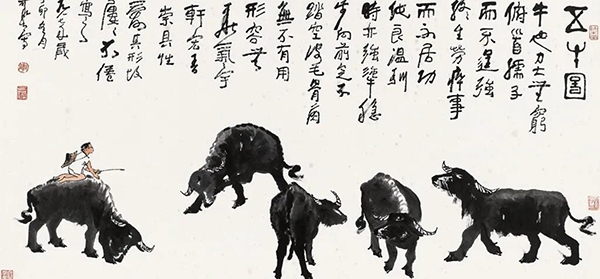 五牛圖
牛也力大無窮
俯首孺子
而不逞強
終生勞瘁事
而不居功
純良溫馴
時亦強犟穩
步向前足不
踏空皮毛骨角
無不有用
形容無
華氣宇
軒宏吾
崇其性
愛其形故
屢屢不倦
寫之